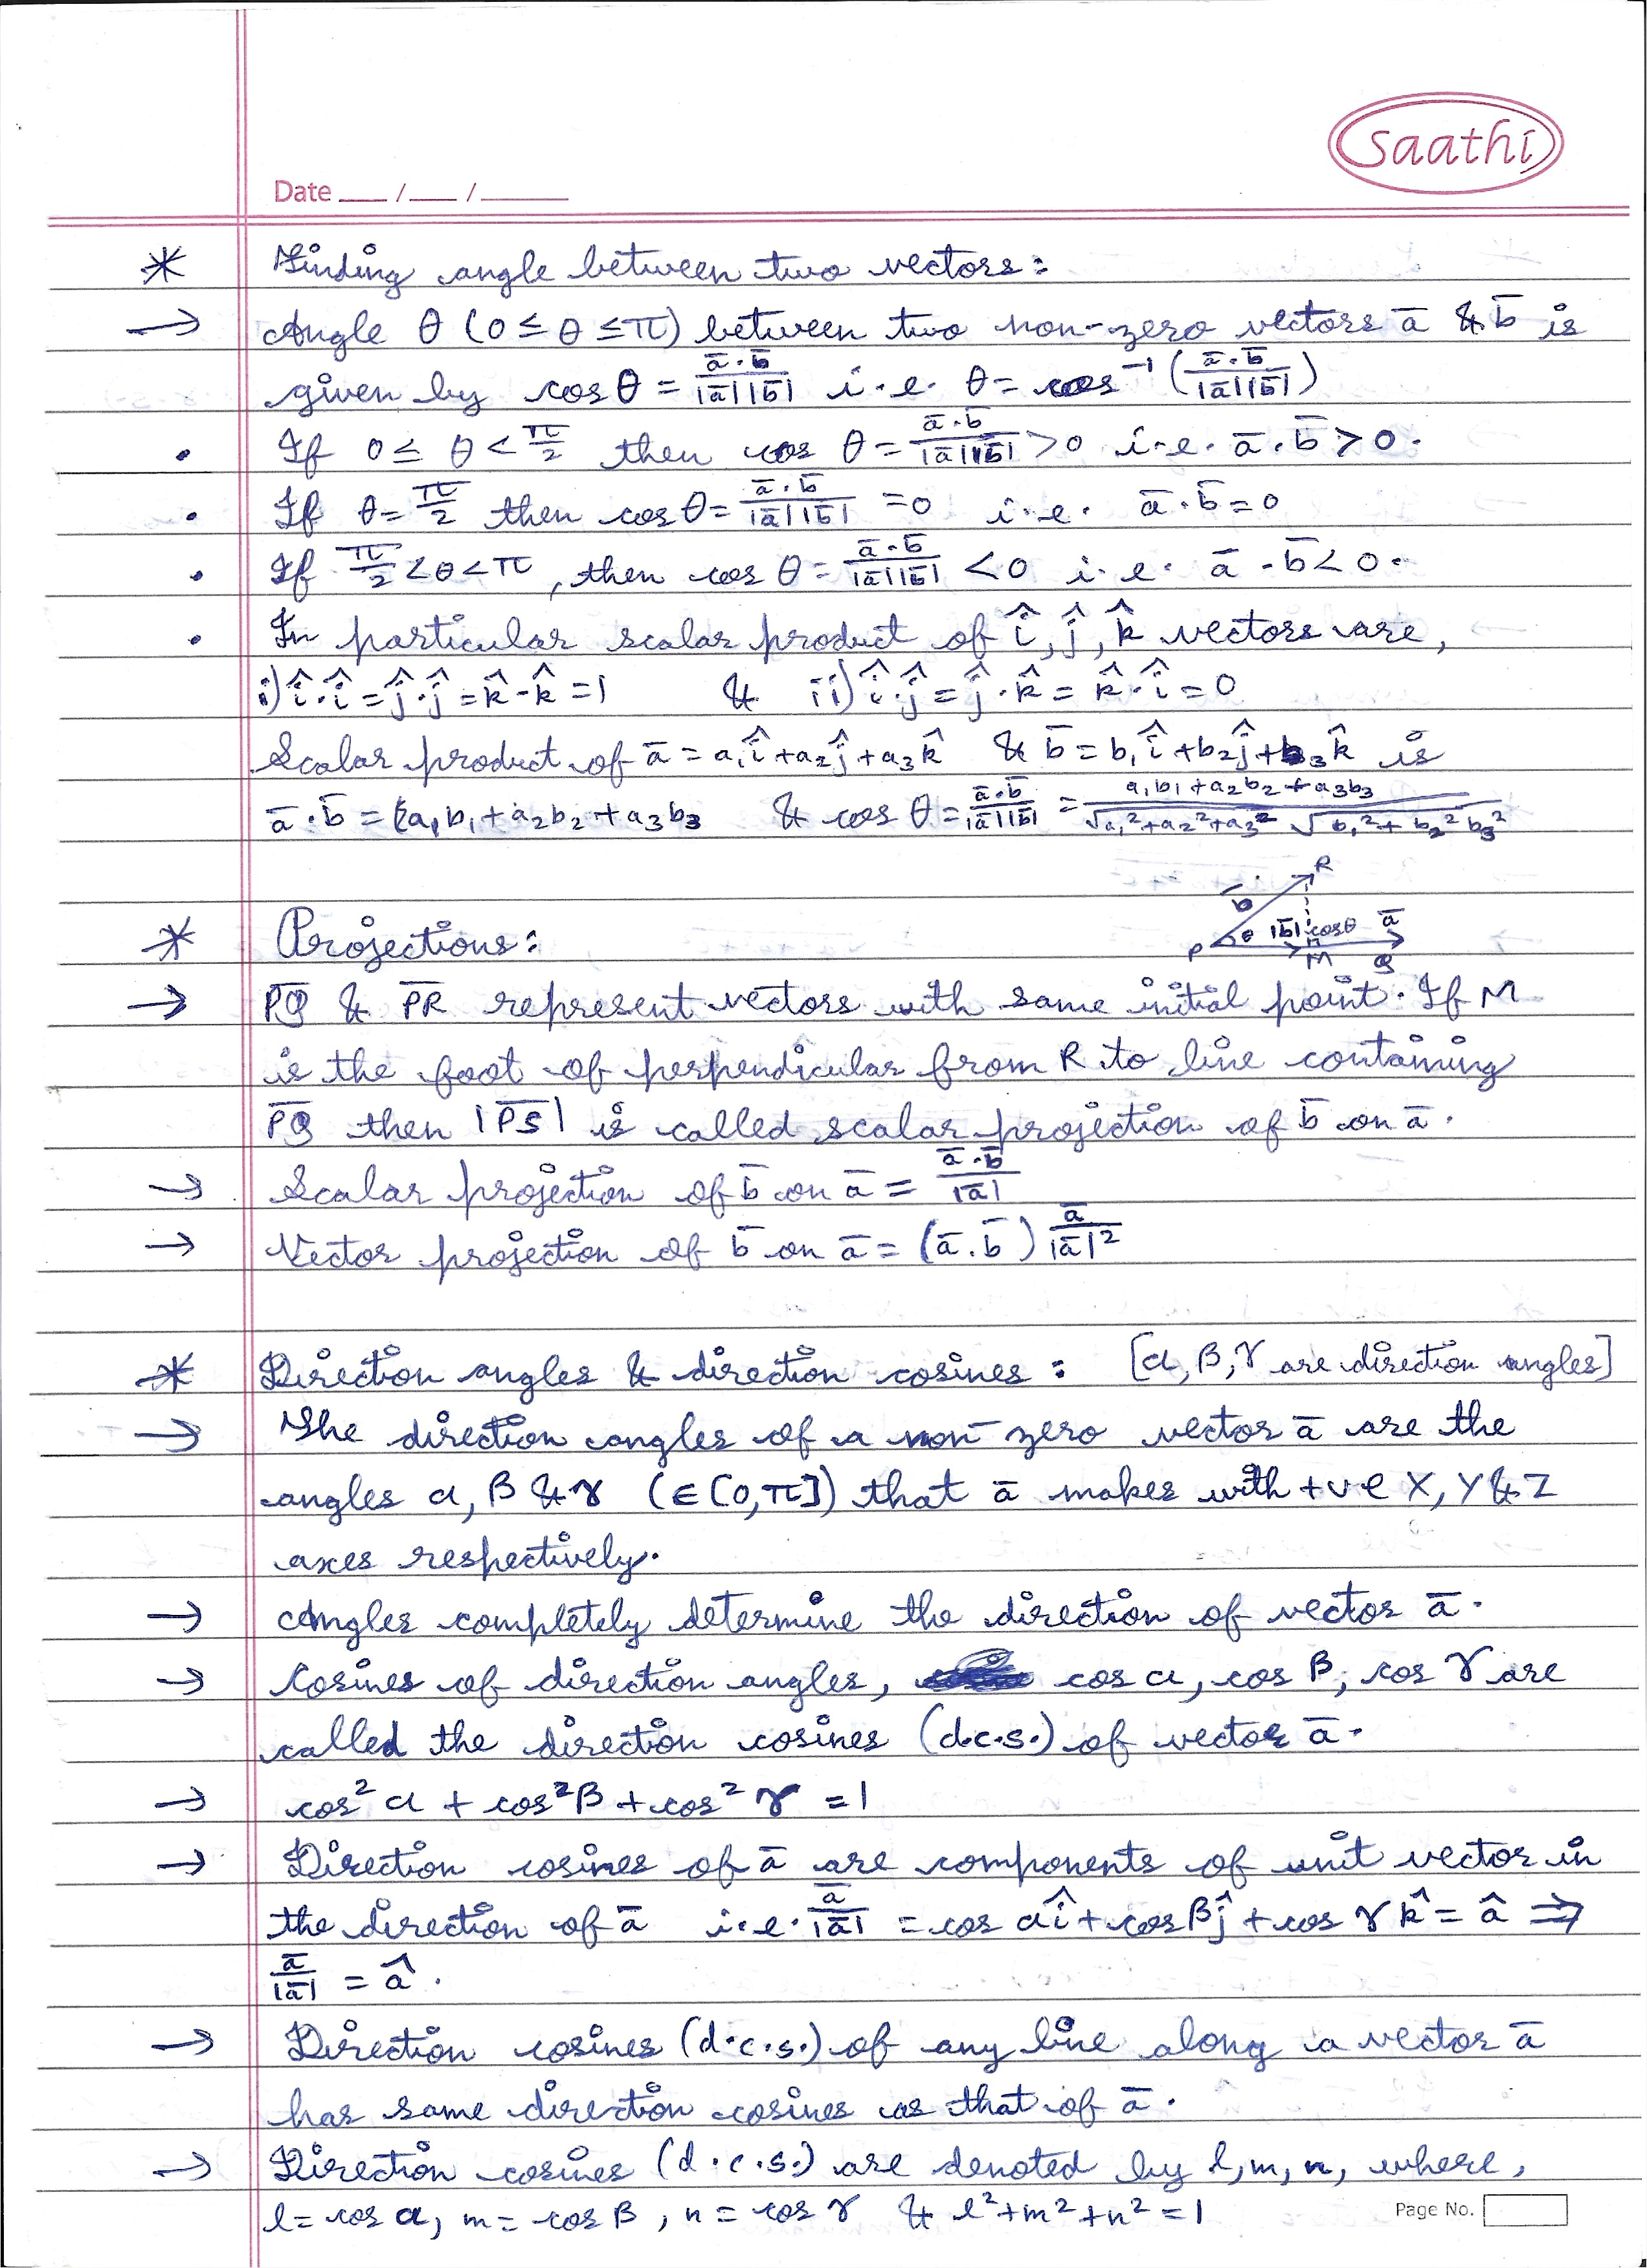 saathi
Date ___ / ___ / ______
* Finding angle between two vectors:
→ Angle θ (0 ≤ θ ≤ π) between two non-zero vectors a̅ & b̅ is
given by cos θ = a̅·b̅/|a̅||b̅| i.e. θ = cos⁻¹ (a̅·b̅/|a̅||b̅|)
• If 0 ≤ θ < π/2 then cos θ = a̅·b̅/|a̅||b̅| > 0 i.e. a̅·b̅ > 0.
• If θ = π/2 then cos θ = a̅·b̅/|a̅||b̅| = 0 i.e. a̅·b̅ = 0
• If π/2 < θ < π, then cos θ = a̅·b̅/|a̅||b̅| < 0 i.e. a̅·b̅ < 0.
• In particular scalar product of î, ĵ, k̂ vectors are,
i) î·î = ĵ·ĵ = k̂·k̂ = 1 & ii) î·ĵ = ĵ·k̂ = k̂·î = 0
Scalar product of a̅ = a₁î + a₂ĵ + a₃k̂ & b̅ = b₁î + b₂ĵ + b₃k̂ is
a̅·b̅ = a₁b₁ + a₂b₂ + a₃b₃ & cos θ = a̅·b̅/|a̅||b̅| = a₁b₁ + a₂b₂ + a₃b₃/√a₁² + a₂² + a₃² √b₁² + b₂² b₃²
R
b̅ θ |b̅| cosθ a̅
P M Q
* Projections:
→ P̅Q̅ & P̅R̅ represent vectors with same initial point. If M
is the foot of perpendicular from R to line containing
P̅Q̅ then |P̅S̅| is called scalar projection of b̅ on a̅.
→ Scalar projection of b̅ on a̅ = a̅·b̅/|a̅|
→ Vector projection of b̅ on a̅ = (a̅.b̅) a̅/|a̅|²
* Direction angles & direction cosines: [α, β, γ are direction angles]
→ The direction angles of a non-zero vector a̅ are the
angles α, β & γ (∈ [0, π]) that a̅ makes with +ve X, Y & Z
axes respectively.
→ Angles completely determine the direction of vector a̅.
→ Cosines of direction angles, cos α, cos β, cos γ are
called the direction cosines (d.c.s.) of vector a̅.
→ cos² α + cos² β + cos² γ = 1
→ Direction cosines of a̅ are components of unit vector in
the direction of a̅ i.e. a̅/|a̅| = cos α î + cos β ĵ + cos γ k̂ = â ⇒
a̅/|a̅| = â.
→ Direction cosines (d.c.s.) of any line along a vector a̅
has same direction cosines as that of a̅.
→ Direction cosines (d.c.s.) are denoted by l, m, n, where,
l = cos α, m = cos β, n = cos γ & l² + m² + n² = 1
Page No.